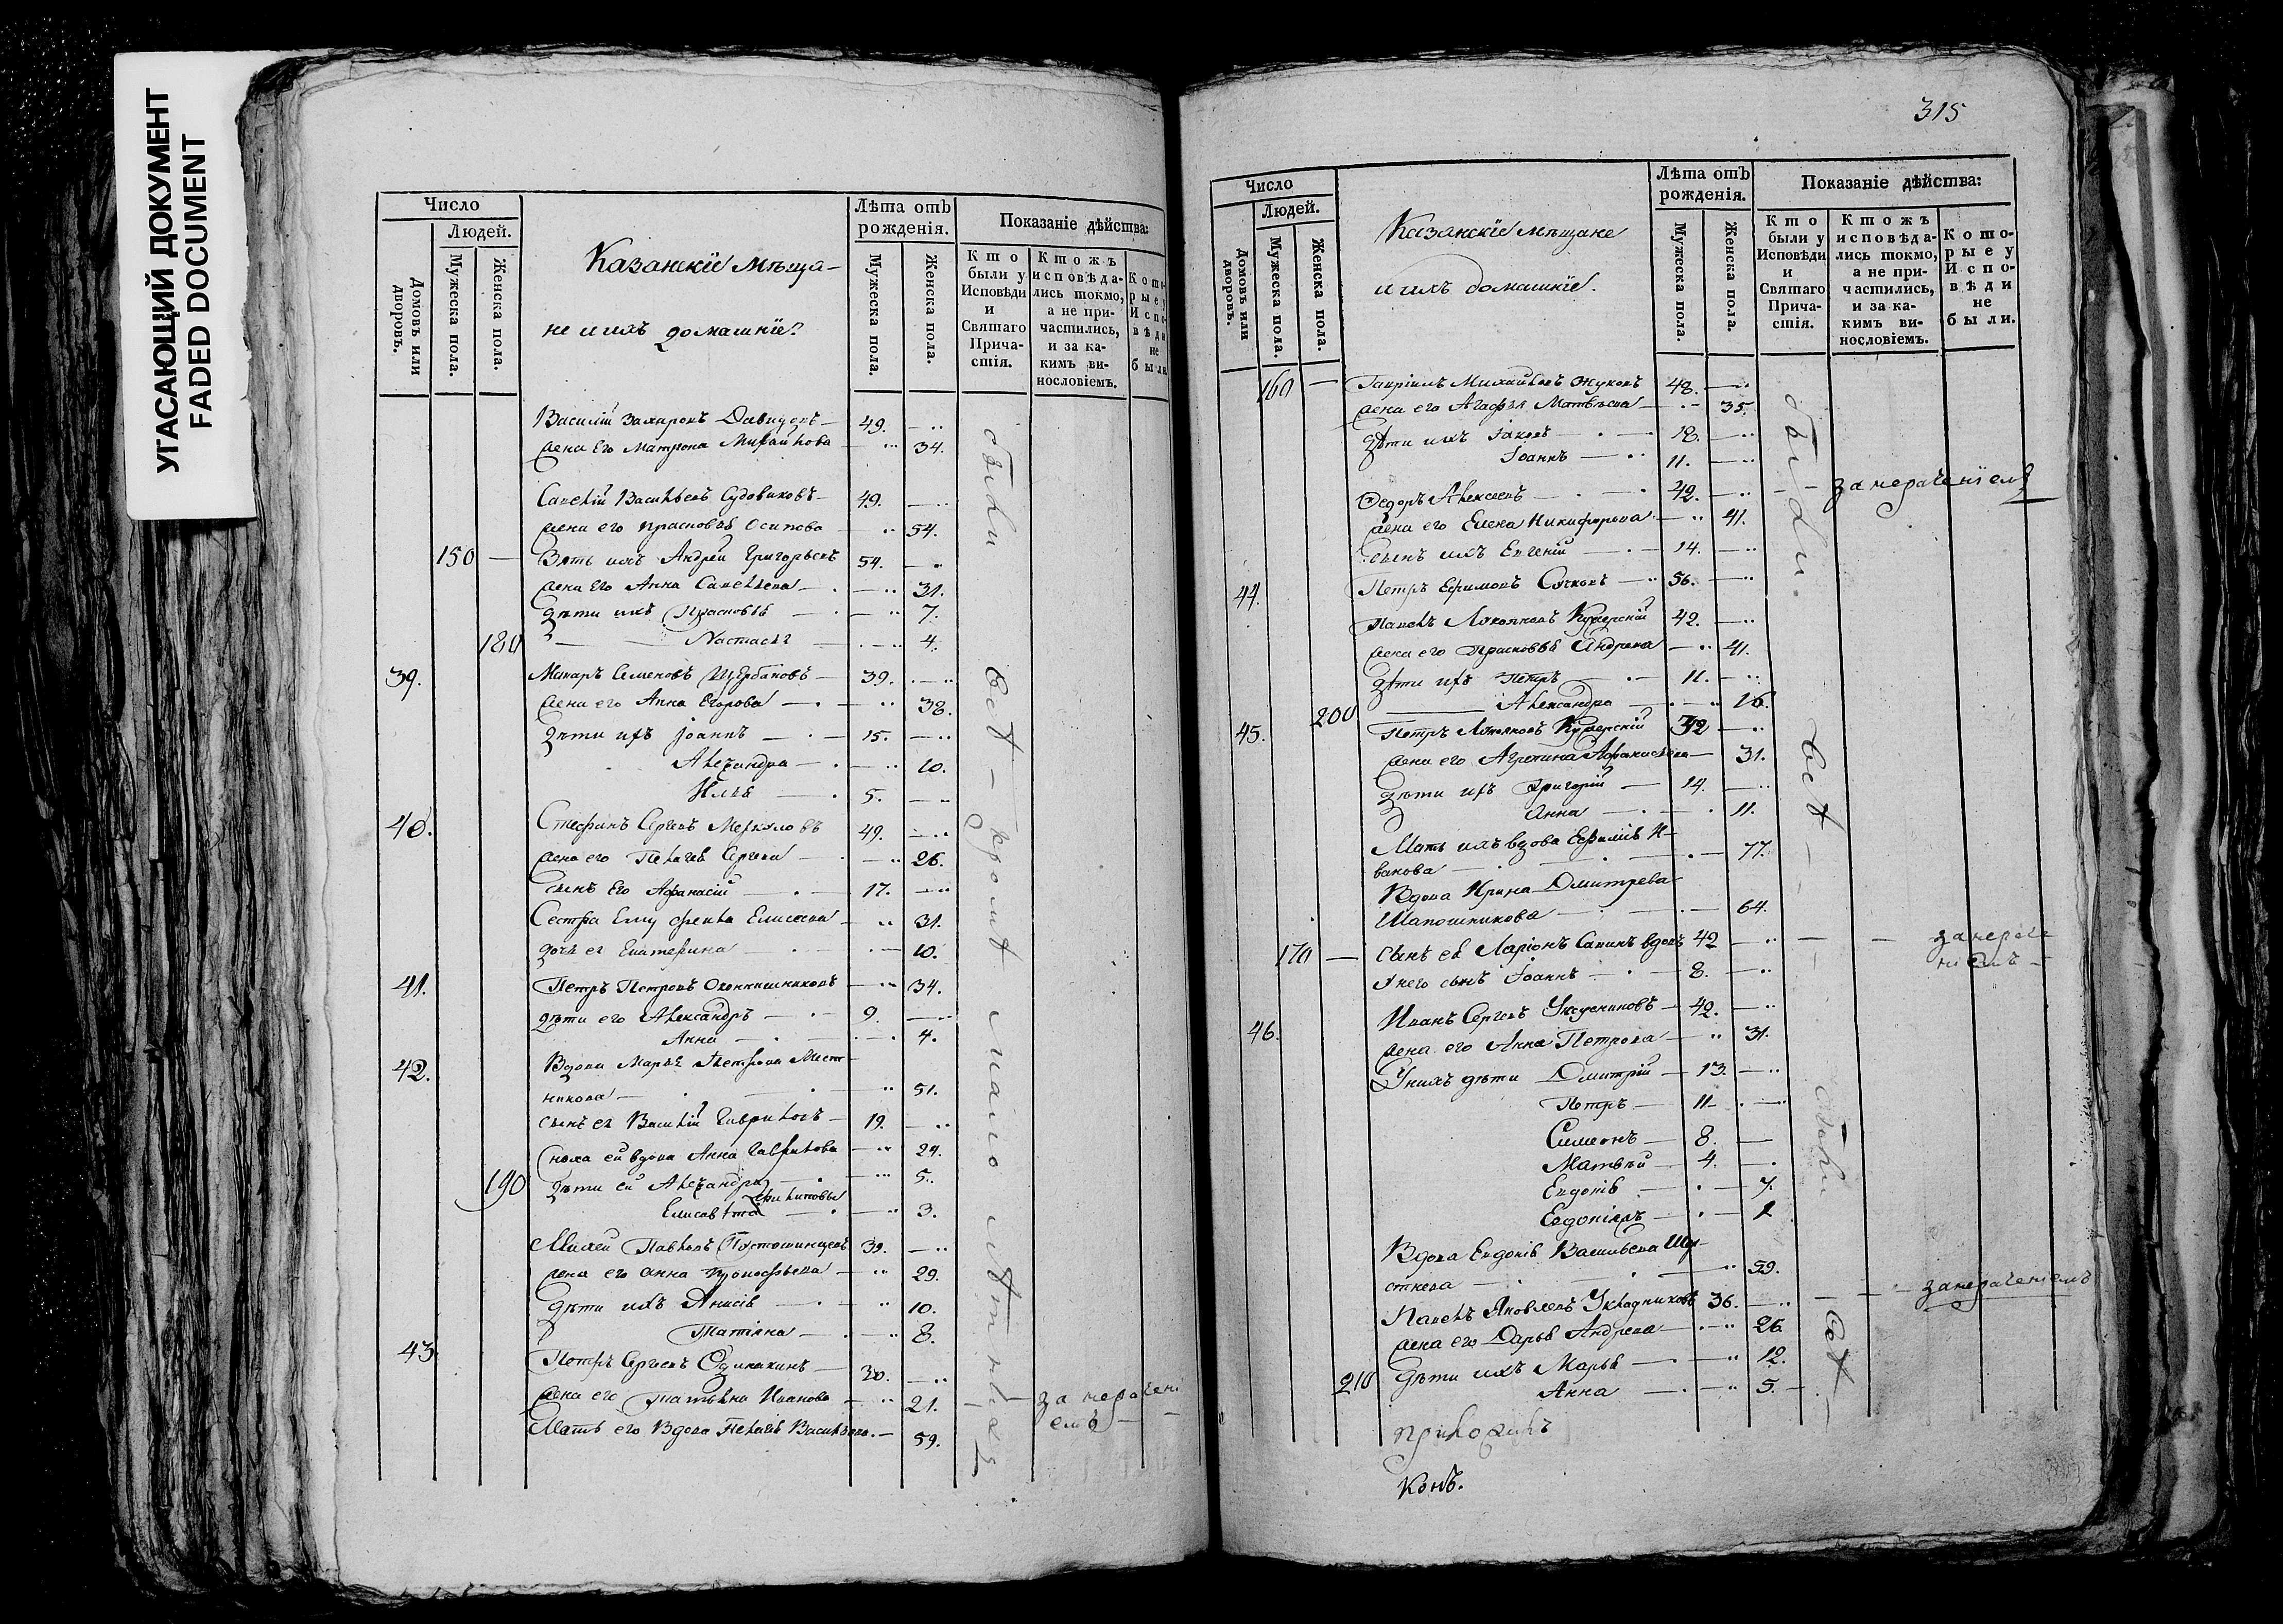 УГАСАЮЩИЙ ДОКУМЕНТ
FADED DOCUMENT
Число
Людей.
Домовъ или дворовъ.
Мужеска пола.
Женска пола.
Казанскїе мѣща-
не и ихъ домашнїе.
Лѣта отъ рожденїя.
Мужеска пола.
Женска пола.
Показанїе дѣйства:
Кто были у Исповѣди и Святаго Причастїя.
Кто жъ исповѣдались токмо, а не причастились, и за какимъ винословїемъ.
Которые у Исповѣди не были
Василій Захаровъ Давыдовъ — 49.
жена его Матрона Михайлова — 34.
Савелій Васильевъ Судовиковъ — 49.
жена его Прасковья Осипова — 54.
150 — Зять ихъ Андрей Григорьевъ 54.
жена его Анна Савельева — 31.
дѣти ихъ Прасковья — 7.
180 Настасья — 4.
39. Макаръ Семеновъ Щербаковъ — 39.
жена его Анна Егорова — 38.
дѣти ихъ Іоаннъ — 15.
Александра — 10.
Илья — 5.
40. Стефанъ Сергеевъ Меркуловъ 49.
жена его Пелагея Сергеева — 26.
сынъ его Афанасій — 17.
Сестра ему Фекла — 31.
дочь ея Екатерина — 10.
41. Петръ Петровъ Оконнишниковъ — 34.
дѣти его Александръ — 9.
Анна — 4.
42. Вдова Марья Петрова
никова — 51.
сынъ ея Василій Гавриловъ — 19.
сноха ей вдова Анна Гаврилова — 24.
190 дѣти ей Александра — 5.
Елисавета — 3.
Михей Павловъ 39.
жена его Анна Прокофьева — 29.
дѣти ихъ Анисія — 10.
Татіяна — 8.
43 Петръ Сергеевъ 30.
жена его Татьяна Иванова — 21.
за нерачені
емъ —
Мать его Вдова Пелагея Васильева — 59.
были всѣ — кромѣ малолѣтныхъ
315
Число
Людей.
Домовъ или дворовъ.
Мужеска пола.
Женска пола.
Казанскїе мѣщане
и ихъ домашнїе.
Лѣта отъ рожденїя.
Мужеска пола.
Женска пола.
Показанїе дѣйства:
Кто были у Исповѣди и Святаго Причастїя.
Кто жъ исповѣдались токмо, а не причастились, и за какимъ винословїемъ.
Которые у Исповѣди не были.
160 — Гавріилъ Михайловъ Жуковъ 48.
жена его Агафья Матвѣева — 35.
дѣти ихъ Іаковъ — 18.
Іоаннъ — 11.
Федоръ Алексеевъ — 42. — за нераченіемъ
жена его Елена Никифорова — 41.
сынъ ихъ Евгеній — 14.
44. Петръ Ефимовъ Сучковъ — 56.
Павелъ 42.
жена его Прасковья Андреева — 41.
дѣти ихъ Петръ — 11.
200 Александра — 16.
45. Петръ 32
жена его Агрепина Афанасьева — 31.
дѣти ихъ Григорій — 14.
Анна — 11.
Мать ихъ вдова Ефимія И-
ванова — 77.
Вдова Ирина Дмитрева
Шапошникова — 64.
170 — сынъ ея Ларіонъ Савинъ вдовъ 42 — за нераче
ніемъ —
У него сынъ Іоаннъ — 8.
46. Иванъ Сергеевъ 42.
жена его Анна Петрова — 31.
У нихъ дѣти Дмитрій — 13.
Петръ — 11
Симеонъ — 8.
Матвѣй — 4.
Евдокія — 7.
2
Вдова Евдокія Васильева Шу-
59.
Павелъ Яковлевъ Укладниковъ 36. — за нераченіемъ
жена его Дарья Андреева — 26
дѣти ихъ Марья — 12.
210 Анна — 5.
были всѣ — были всѣ —
конъ.